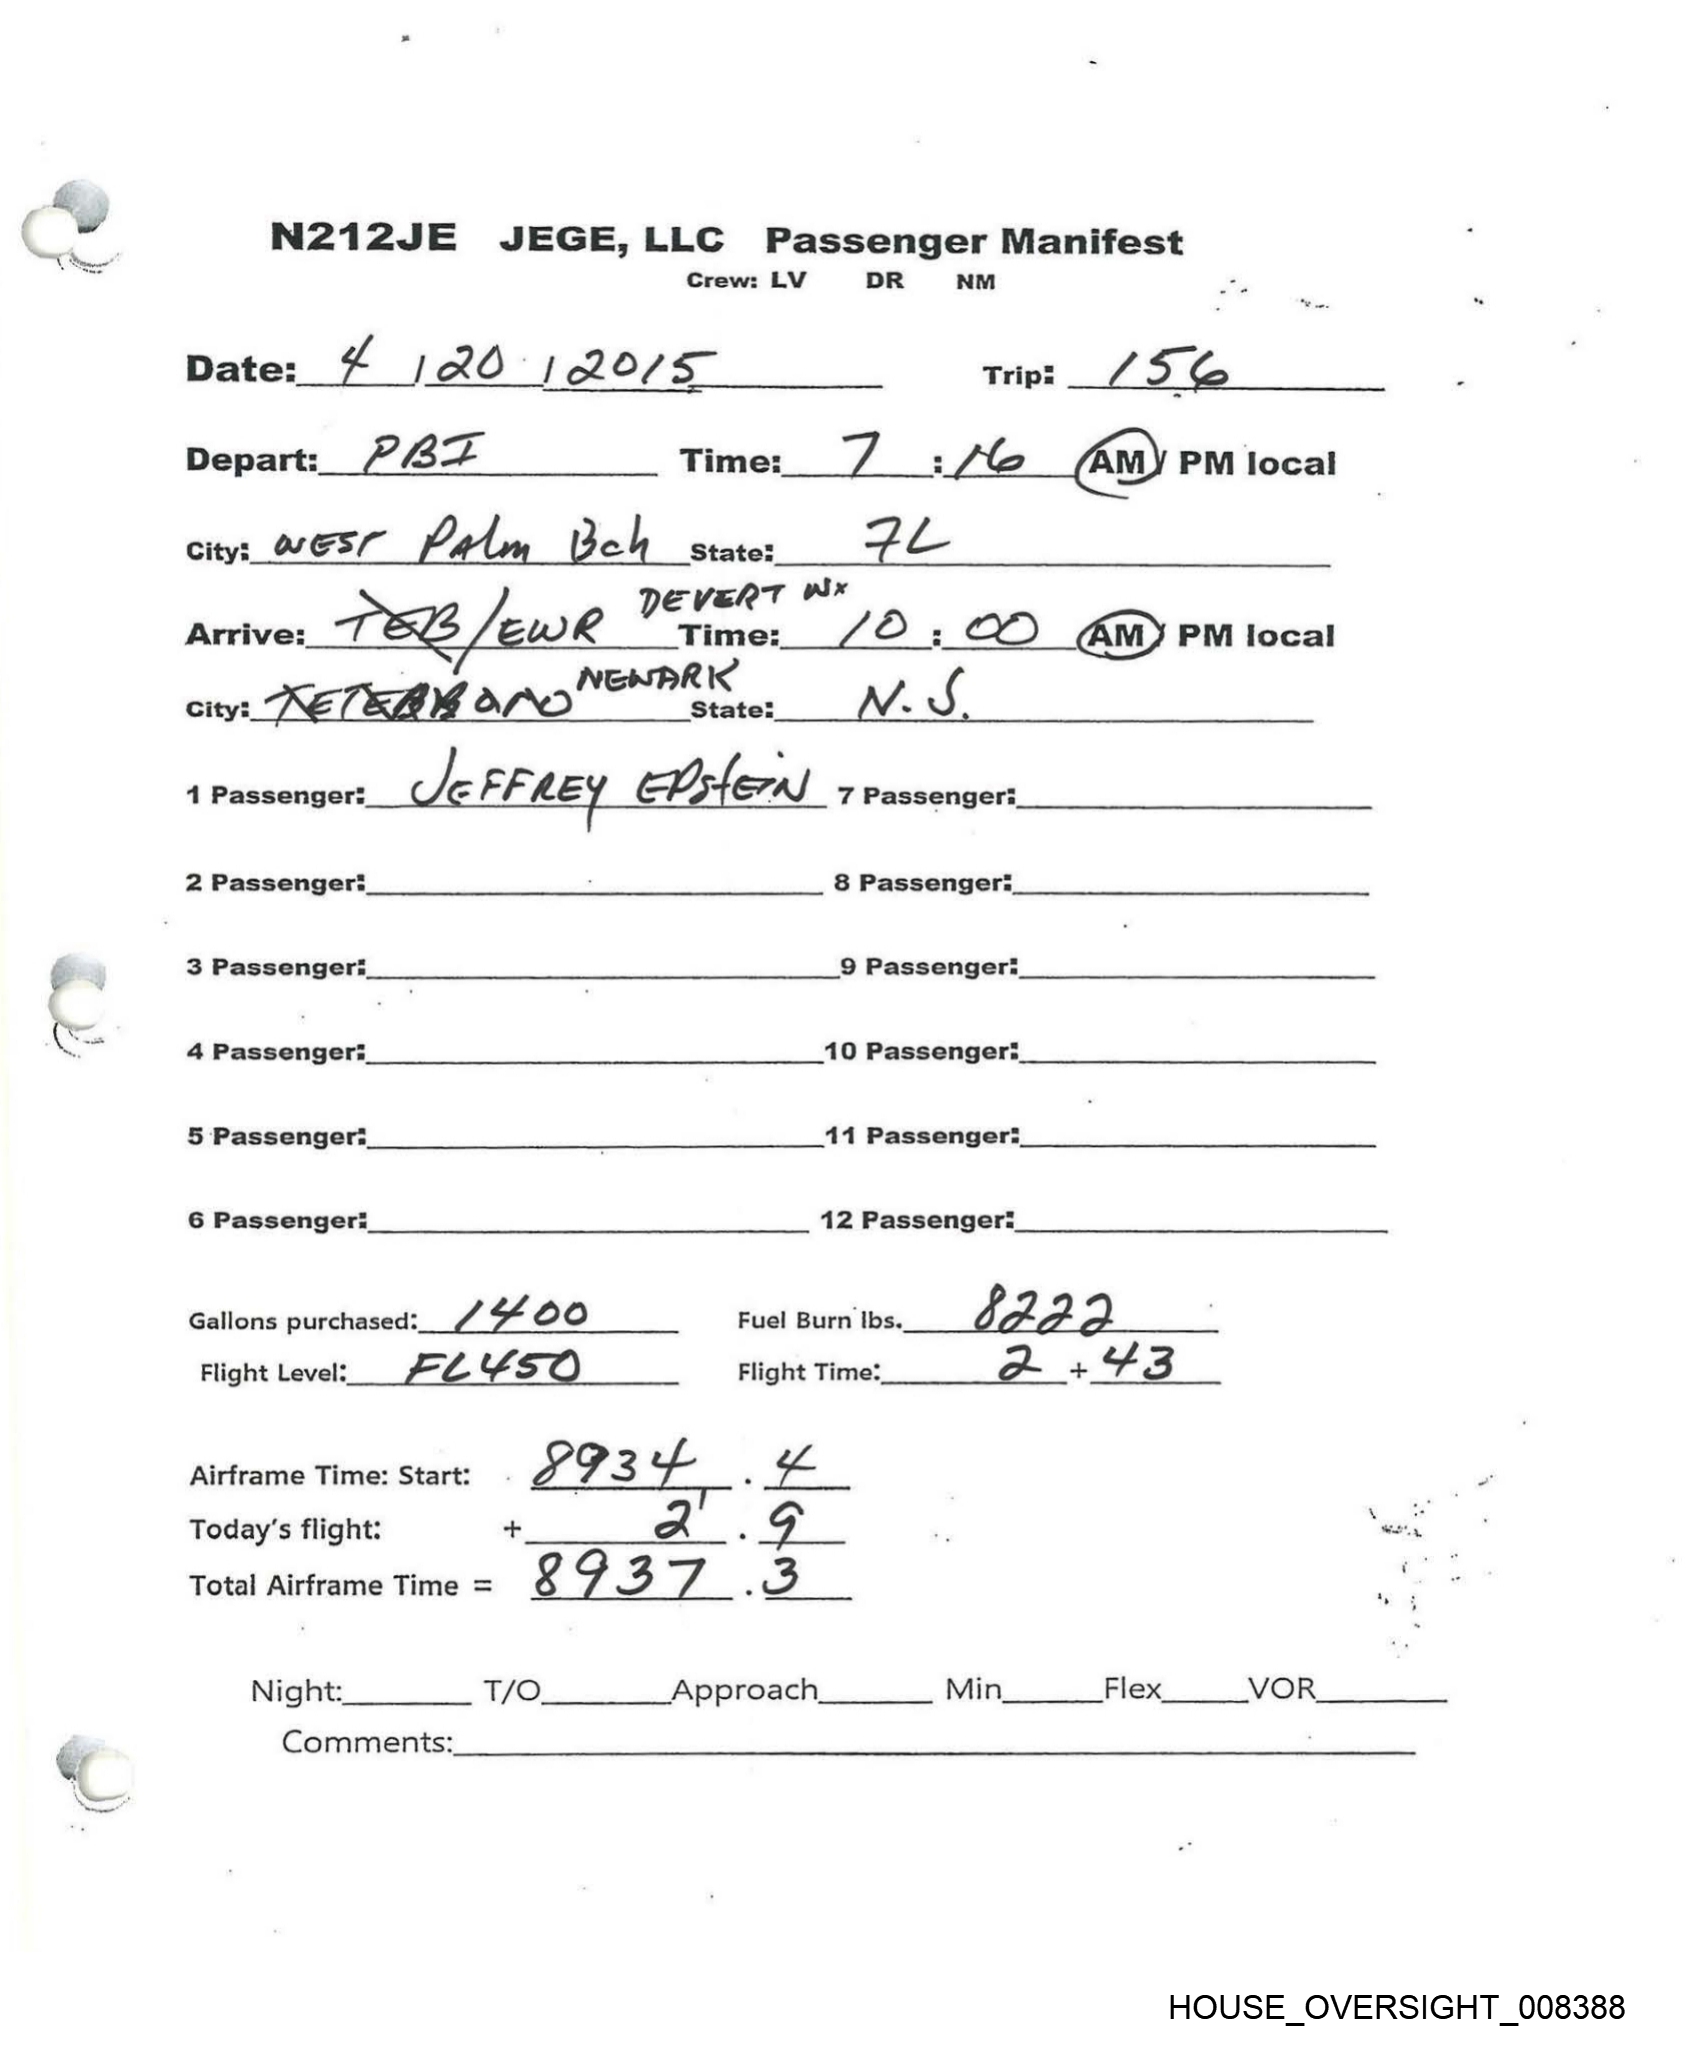 N212JE JEGE, LLC Passenger Manifest
Crew: LV DR NM
Date: 4 / 20 / 2015 Trip: 156
Depart: PBI Time: 7 : 16 AM / PM local
City: WEST PAlm Bch State: FL
DEVERT WX
Arrive: TEB/EWR Time: 10 : 00 AM / PM local
NEWARK
City: TETERBORO State: N.J.
1 Passenger: JEFFREY EPstEiN 7 Passenger:
2 Passenger: 8 Passenger:
3 Passenger: 9 Passenger:
4 Passenger: 10 Passenger:
5 Passenger: 11 Passenger:
6 Passenger: 12 Passenger:
Gallons purchased: 1400 Fuel Burn lbs. 8222
Flight Level: FL450 Flight Time: 2 + 43
Airframe Time: Start: 8934 . 4
Today's flight: + 2 . 9
Total Airframe Time = 8937 . 3
Night: T/O Approach Min Flex VOR
Comments:
HOUSE_OVERSIGHT_008388